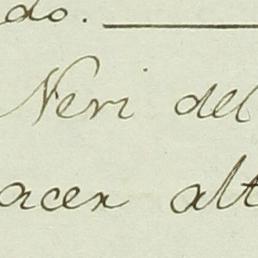 do.
Neri del
acer alt